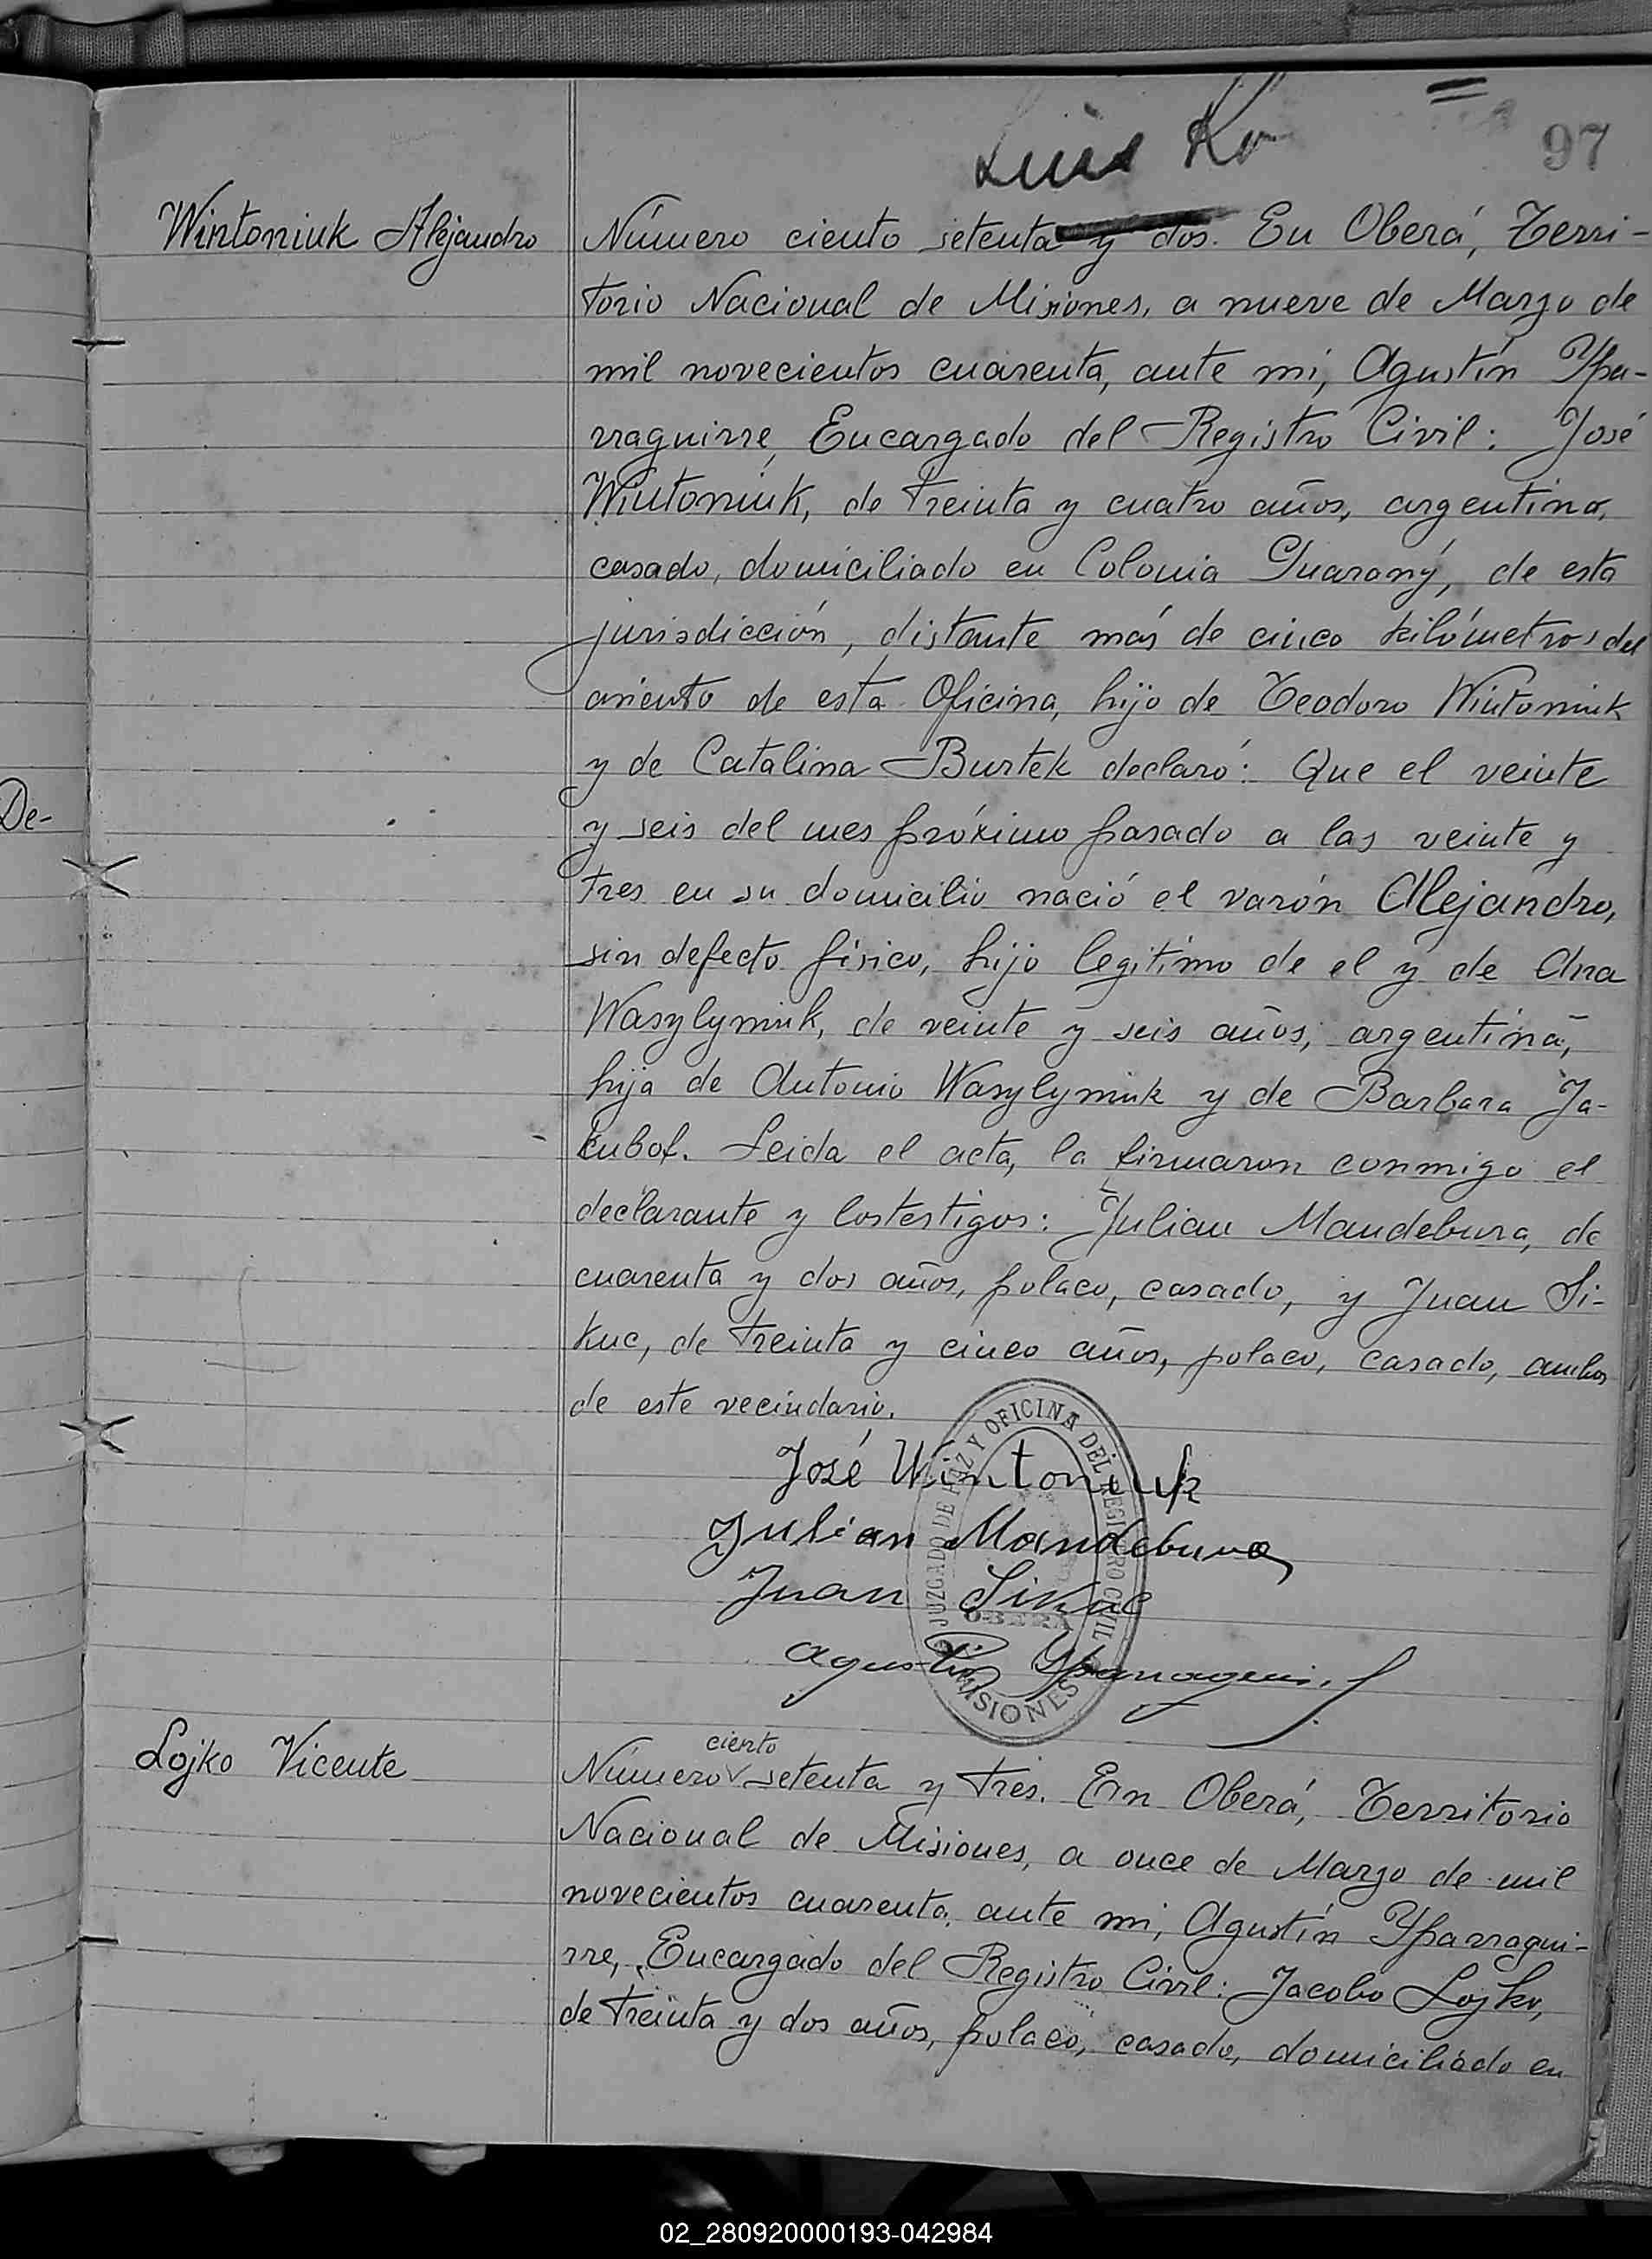 Luis Ko
97
Wintoniuk Alejandro
Número ciento setenta y dos. En Oberá, Terri-
torio Nacional de Misiones, a nueve de Marzo de
mil novecientos cuarenta, ante mi, Agustín Ypa-
rraguirre, Encargado del Registro Civil: José
Wintoniuk, de treinta y cuatro años, argentino,
casado, domiciliado en Colonia Guarany, de esta
jurisdicción, distante más de cinco kilómetros del
asiento de esta Oficina, hijo de Teodoro Wintoniuk
y de Catalina Burtek declaró: Que el veinte
De-
y seis del mes próximo pasado a las veinte y
tres en su domicilio nació el varón Alejandro,
sin defecto físico, hijo legítimo de el y de Ana
Wasylyniuk, de veinte y seis años, argentina,
hija de Antonio Wasylyniuk y de Barbara Ja-
kubof. Leida el acta, la firmaron conmigo el
declarante y los testigos: Julian Mandebura, de
cuarenta y dos años, polaco, casado, y Juan Si-
kuc, de treinta y cinco años, polaco, casado, ambos
de este vecindario.
José Wintoniuk
Julian Mandebura
Juan Sikuc
Agustín Yparraguirre
JUZGADO DE PAZ Y OFICINA DEL REGISTRO CIVIL
OBERA
MISIONES
Lojko Vicente
ciento
Número v setenta y tres. En Oberá, Territorio
Nacional de Misiones, a once de Marzo de mil
novecientos cuarenta, ante mi, Agustín Yparragui-
rre, Encargado del Registro Civil: Jacobo Lojko,
de treinta y dos años, polaco, casado, domiciliado en
02_280920000193-042984